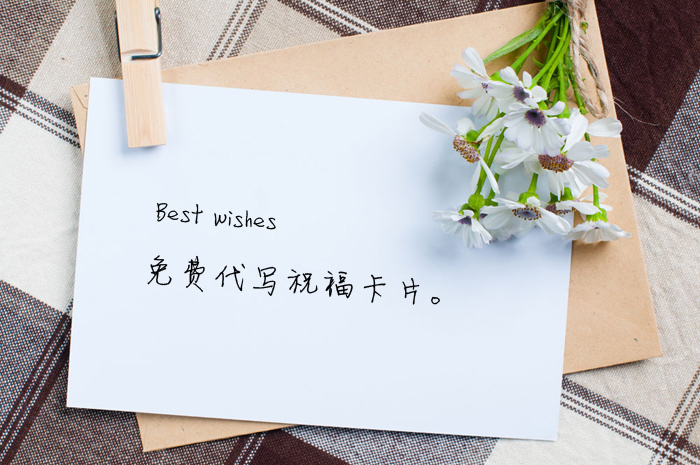 Best wishes
免费代写祝福卡片。